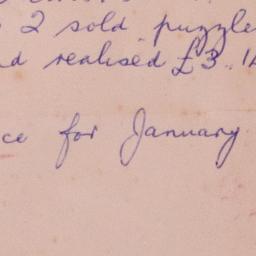 2 sold puzzle
realised £3.
for January